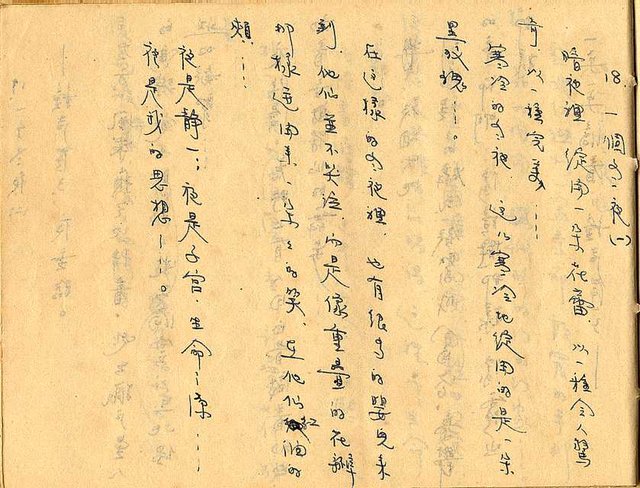 18. 一個冬夜(一)
暗夜裡 綻開一朵花蕾 以一種令人驚
奇 以一種完美……
寒冷的冬夜 這以寒冷地綻開的是一朵
黑玫瑰—。
在這樣的冬夜裡. 也有很多的嬰兒來
到. 他們並不哭泣. 而是像重疊的花瓣
那樣連開來. 朵朵的笑. 在他們 紅 潤的
頰……
夜是靜——; 夜是子宮. 生命之源……
夜是我的思想—。